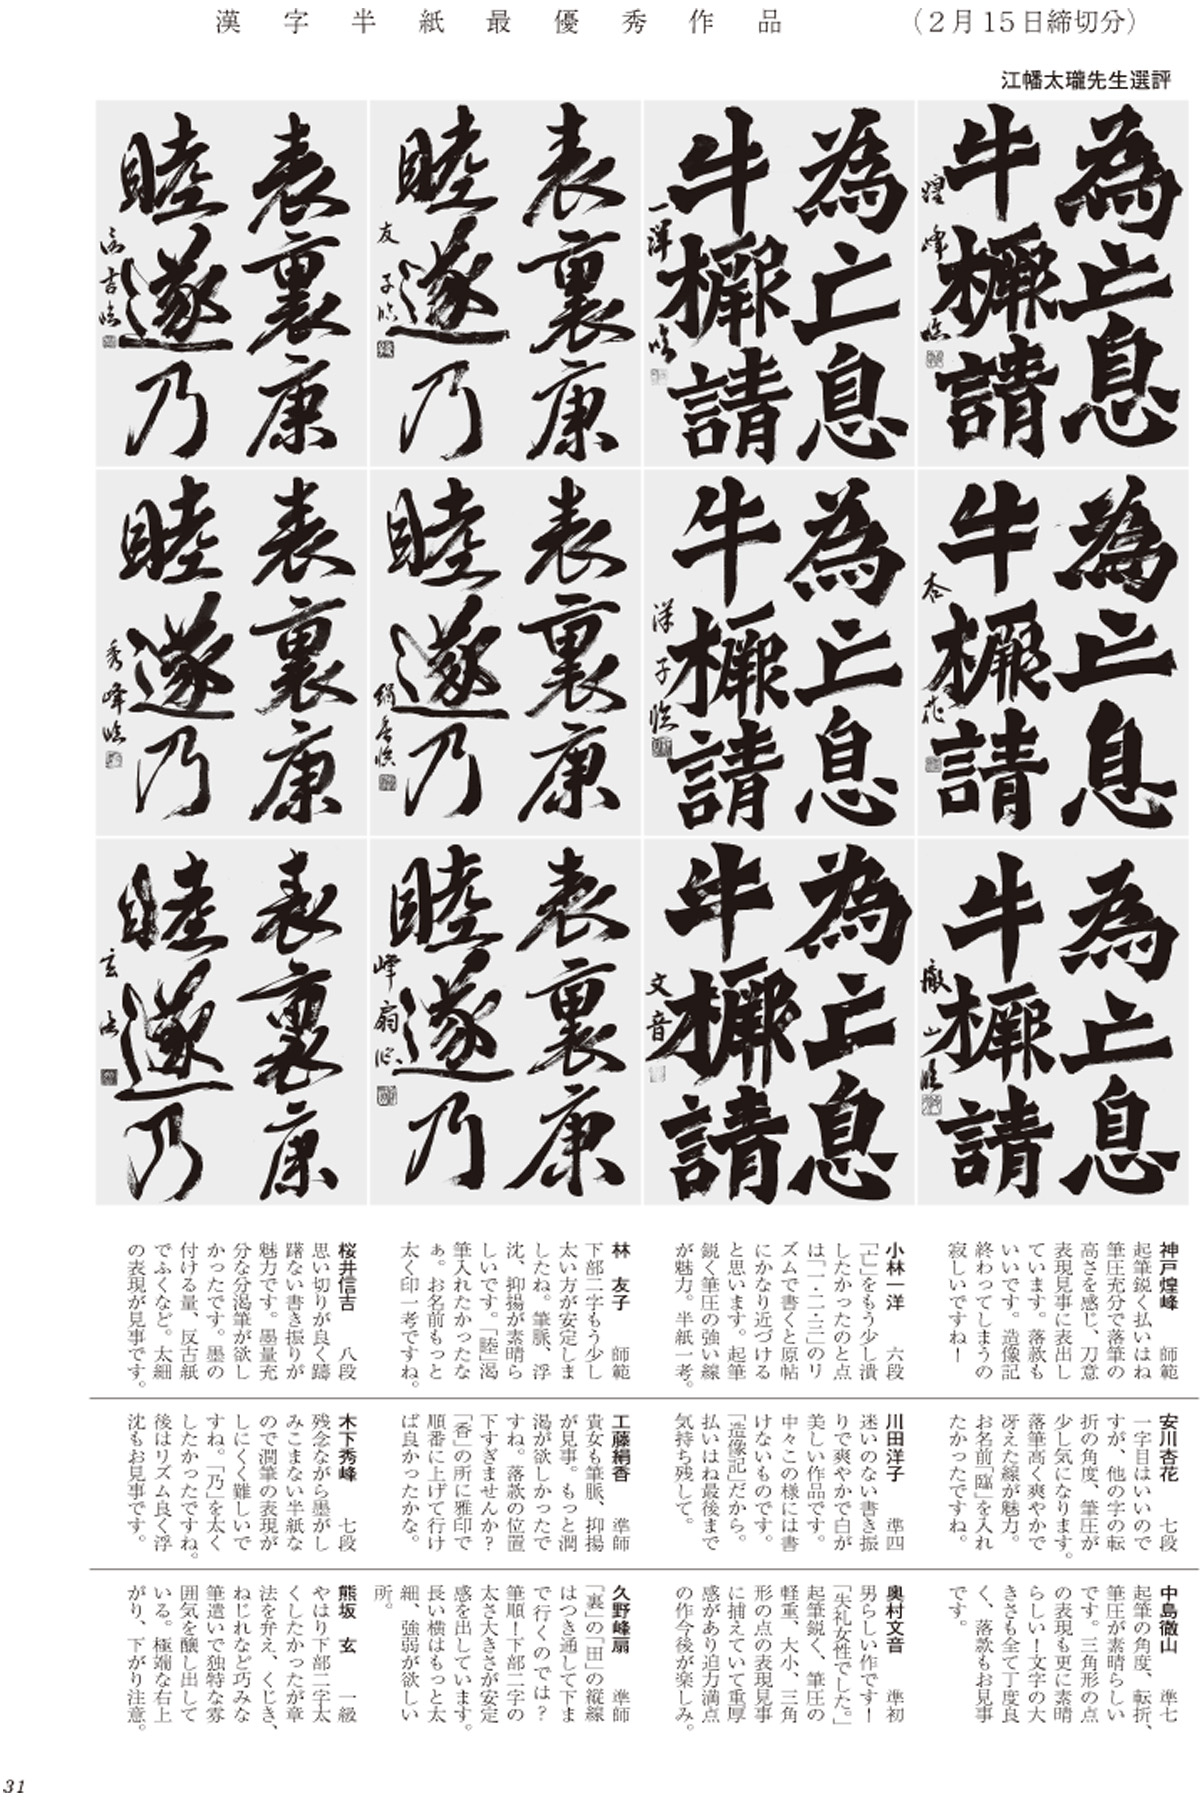 漢字半紙最優秀作品　（２月15日締切分）
江幡太瓏先生選評
為亡息
牛橛請
煌峰臨
為亡息
牛橛請
一洋臨
表裏康
睦遂乃
友子臨
表裏康
睦遂乃
信吉臨
為亡息
牛橛請
杏花
為亡息
牛橛請
洋子臨
表裏康
睦遂乃
絹香臨
表裏康
睦遂乃
秀峰臨
為亡息
牛橛請
徹山臨
為亡息
牛橛請
文音
表裏康
睦遂乃
峰扇臨
表裏康
睦遂乃
玄臨
神戸煌峰　師範
起筆鋭く払いはね
筆圧充分で落筆の
高さを感じ、刀意
表現見事に表出し
ています。落款も
いいです。造像記
終わってしまうの
寂しいですね！
小林一洋　六段
「亡」をもう少し潰
したかったのと点
は「一・二・三」のリ
ズムで書くと原帖
にかなり近づける
と思います。起筆
鋭く筆圧の強い線
が魅力。半紙一考。
林　友子　師範
下部二字もう少し
太い方が安定しま
したね。筆脈、浮
沈、抑揚が素晴ら
しいです。「睦」渇
筆入れたかったな
ぁ。お名前もっと
太く印一考ですね。
桜井信吉　八段
思い切りが良く躊
躇ない書き振りが
魅力です。墨量充
分な分渇筆が欲し
かったです。墨の
付ける量、反古紙
でふくなど。太細
の表現が見事です。
安川杏花　七段
一字目はいいので
すが、他の字の転
折の角度、筆圧が
少し気になります。
落筆高く爽やかで
冴えた線が魅力。
お名前「臨」を入れ
たかったですね。
川田洋子　準四
迷いのない書き振
りで爽やかで白が
美しい作品です。
中々この様には書
けないものです。
「造像記」だから。
払いはね最後まで
気持ち残して。
工藤絹香　準師
貴女も筆脈、抑揚
が見事。もっと潤
渇が欲しかったで
すね。落款の位置
下すぎませんか？
「香」の所に雅印で
順番に上げて行け
ば良かったかな。
木下秀峰　七段
残念ながら墨がし
みこまない半紙な
ので潤筆の表現が
しにくく難しいで
すね。「乃」を太く
したかったですね。
後はリズム良く浮
沈もお見事です。
中島徹山　準七
起筆の角度、転折、
筆圧が素晴らしい
です。三角形の点
の表現も更に素晴
らしい！文字の大
きさも全て丁度良
く、落款もお見事
です。
奥村文音　準初
男らしい作です！
「失礼女性でした。」
起筆鋭く、筆圧の
軽重、大小、三角
形の点の表現見事
に捕えていて重厚
感があり迫力満点
の作今後が楽しみ。
久野峰扇　準師
「裏」の「田」の縦線
はつき通して下ま
で行くのでは？
筆順！下部二字の
太さ大きさが安定
感を出しています。
長い横はもっと太
細、強弱が欲しい
所。
熊坂　玄　一級
やはり下部二字太
くしたかったが章
法を弁え、くじき、
ねじれなど巧みな
筆遣いで独特な雰
囲気を醸し出して
いる。極端な右上
がり、下がり注意。
31